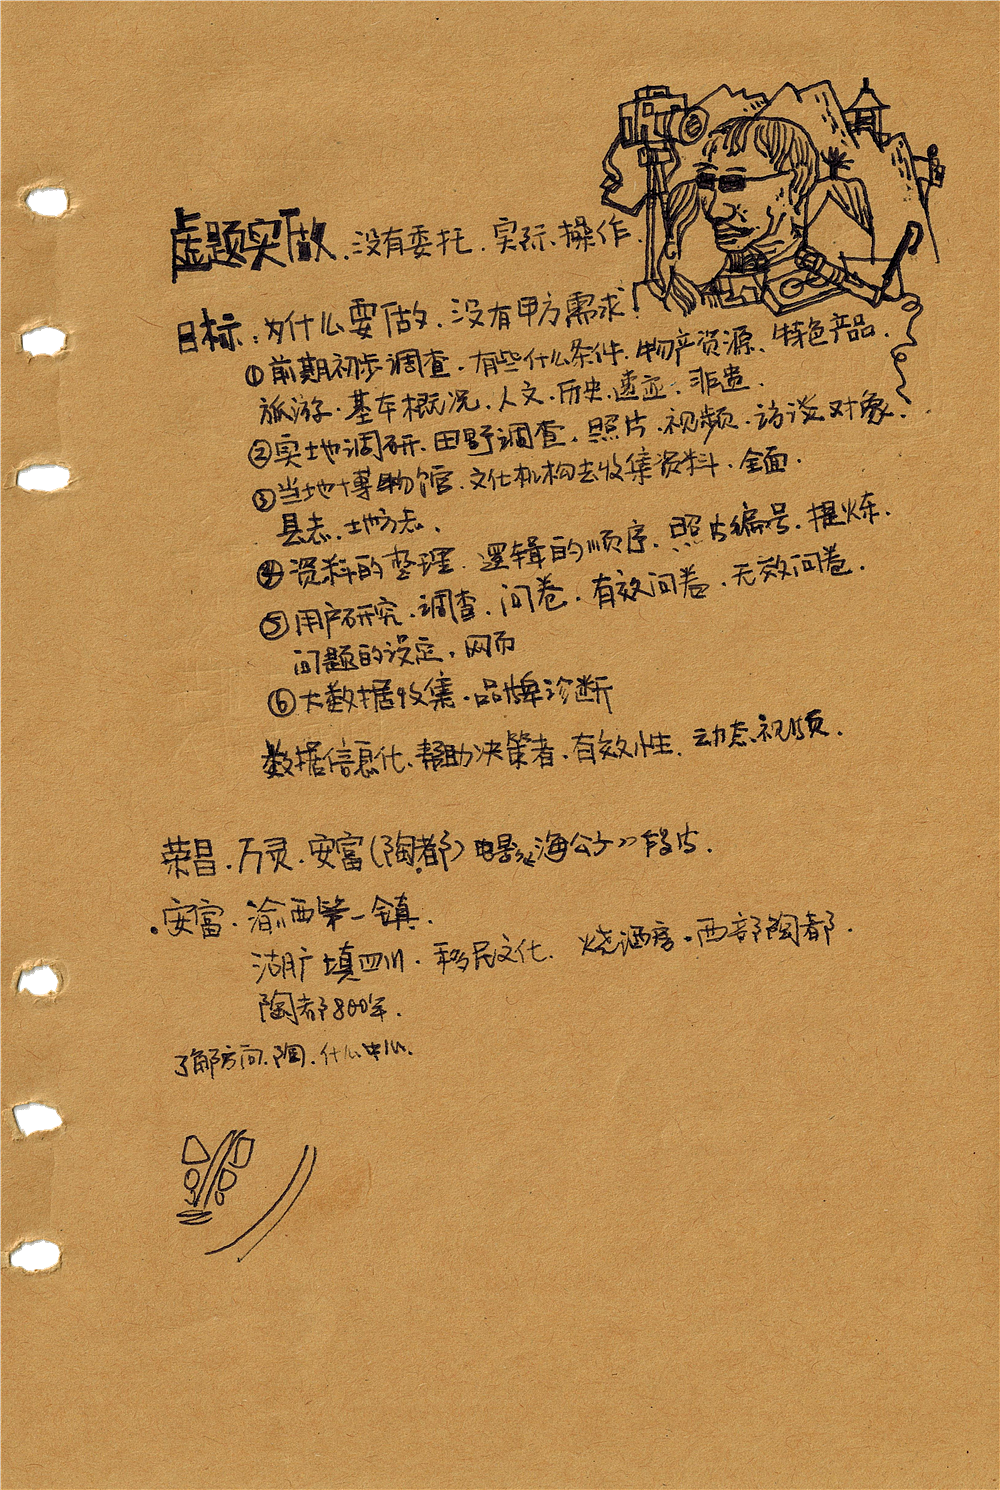 虚题实做.没有委托.实际、操作.
目标:为什么要做.没有甲方需求!
①前期初步调查.有些什么条件.物产资源、特色产品.
旅游.基本概况.人文.历史.遗迹.非遗.
②实地调研.田野调查.照片.视频.访谈对象.
③当地博物馆.文化机构去收集资料.全面.
县志.地方志.
④资料的整理.逻辑的顺序.照片编号.提炼.
⑤用户研究.调查.问卷.有效问卷.无效问卷.
问题的设定.网页
⑥大数据收集.品牌诊断
数据信息化.帮助决策者.有效性.动态视频.
荣昌.万灵.安富(陶都)电影《海公子》片.
.安富.渝西第一镇.
湖广填四川.移民文化.烧酒房.西部陶都.
陶都800年.
了解方向.陶.什么中心.